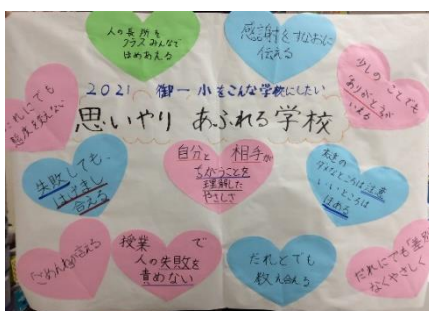 人の長所を
クラスみんなで
ほめあえる
感謝をすなおに
伝える
少しのことでも
ありがとうが
いえる
2021 御一小をこんな学校にしたい
だれにでも
態度を変えない
思いやり あふれる学校
失敗しても、
はげまし
合える
自分と 相手が
ちがうことを
理解した
やさしさ
友達の
ダメなところは注意
いいところは
ほめる
ごめんねが言える
授業 で
人の失敗を
責めない
だれとでも
教え合える
だれにでも「差別」
なくやさしく